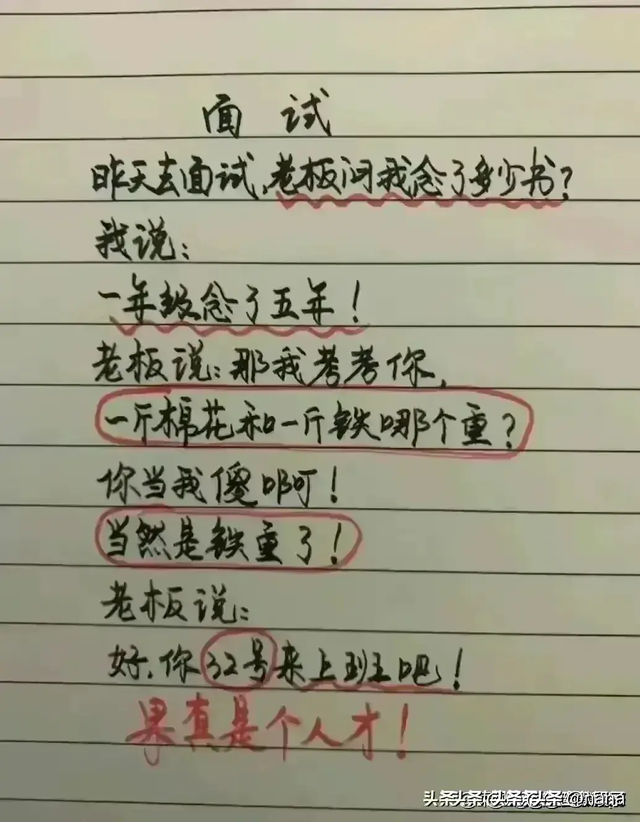 面试
昨天去面试,老板问我念了多少书?
我说:
一年级念了五年!
老板说:那我考考你,
一斤棉花和一斤铁哪个重?
你当我傻啊!
当然是铁重了!
老板说:
好,你32号来上班吧!
果真是个人才!